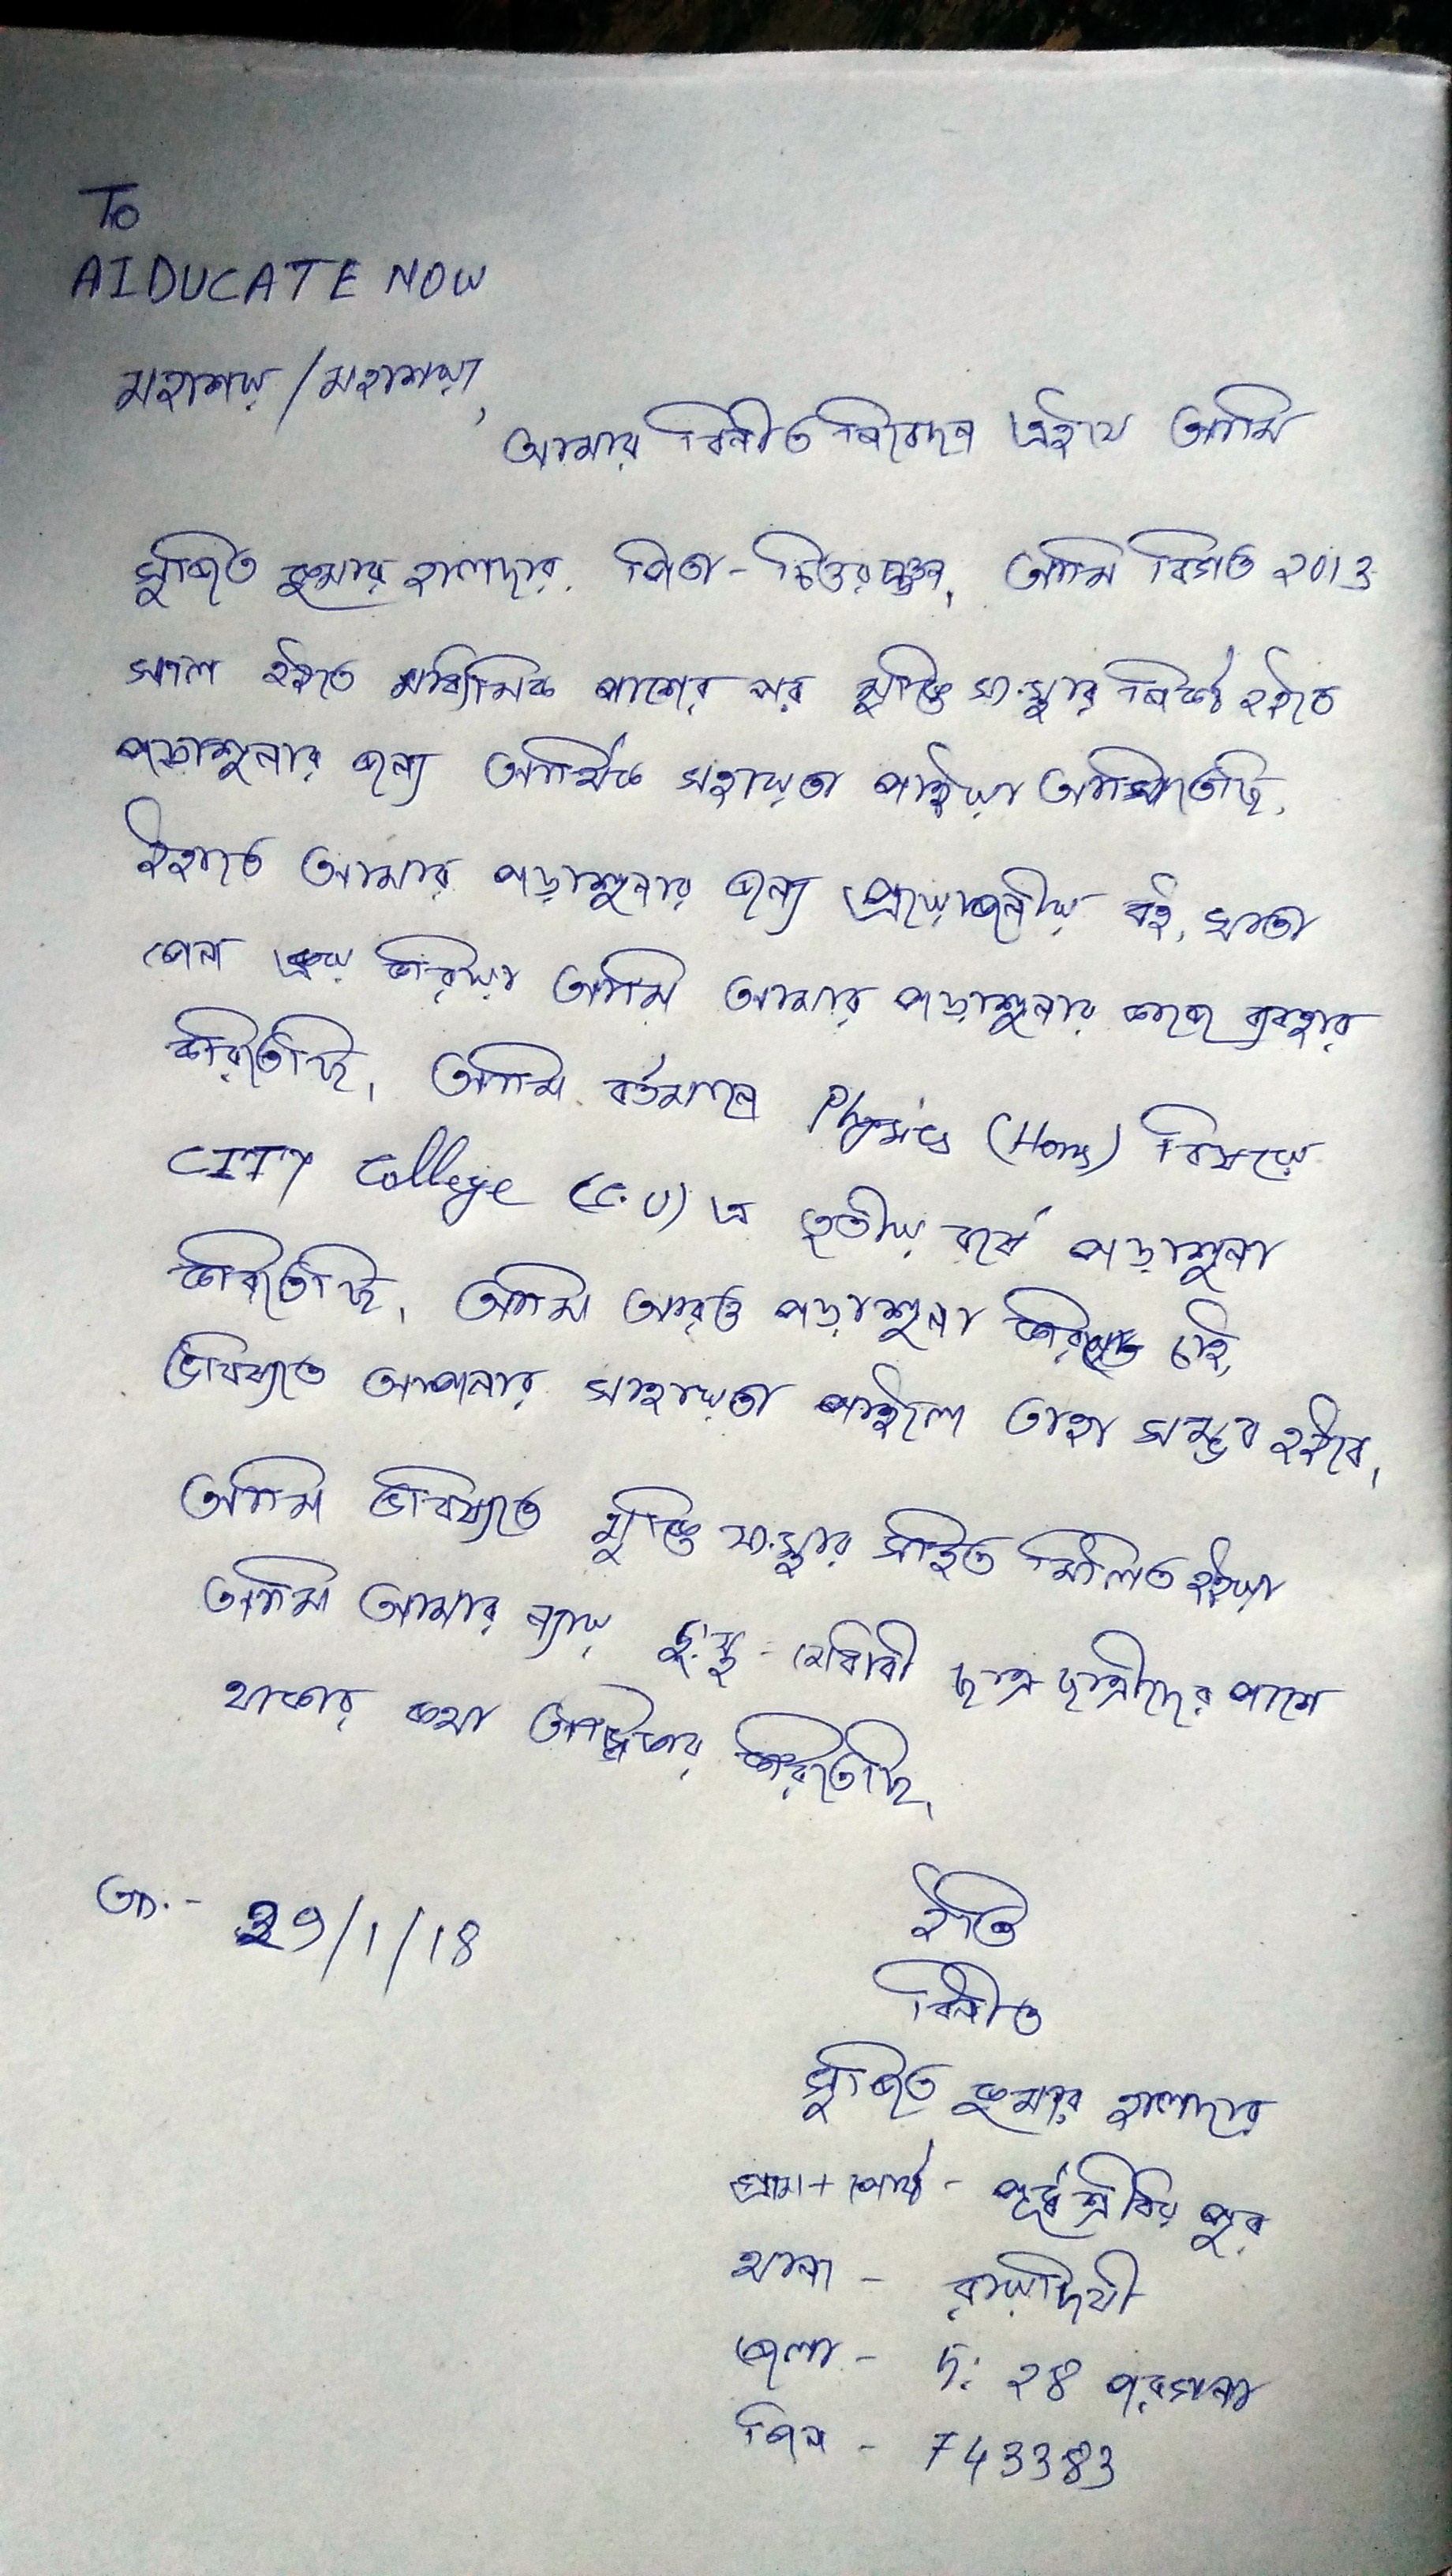 To
AIDUCATE NOW
মহাশয়/মহাশয়া,
আমার বিনীত নিবেদন এইযে আমি
সুজিত কুমার হালদার, পিতা - চিত্তরঞ্জন, আমি বিগত ২013
সাল হইতে মাধ্যমিক পাশের পর মুক্তি সংস্থার নিকট হইতে
পড়াশুনার জন্য আর্থিক সহায়তা পাইয়া আসিতেছি,
ইহাতে আমার পড়াশুনার জন্য প্রয়োজনীয় বই, খাতা
পেন ক্রয় করিয়া আমি আমার পড়াশুনার কাজে ব্যবহার
করিতেছি, আমি বর্তমানে Physics (Hons) বিষয়ে
CITY College (C.U) এ তৃতীয় বর্ষে পড়াশুনা
করিতেছি, আমি আরও পড়াশুনা করিতে চাই,
ভবিষ্যতে আপনার সাহায্যতা পাইলে তাহা সম্ভব হইবে,
আমি ভবিষ্যতে মুক্তি সংস্থার সহিত মিলিত হইয়া
আমি আমার ন্যায় দুঃস্থ - মেধাবী ছাত্র ছাত্রীদের পাশে
থাকার কথা অঙ্গিকার করিতেছি,
তাং - 29/1/18
ইতি
বিনীত
সুজিত কুমার হালদার
গ্রাম + পোষ্ট - পূর্ব শ্রীধর পুর
থানা - রায়দিঘী
জেলা - দঃ ২৪ পরগনা
পিন - 743383